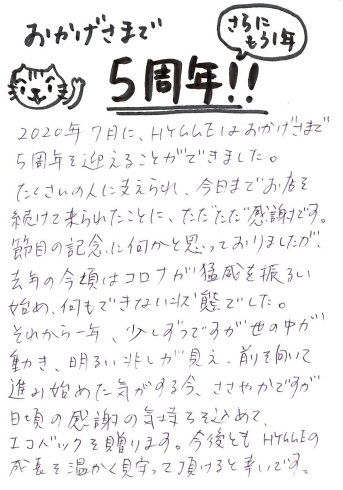 おかげさまで
さらに
もう1年
5周年!!
2020年7月に、HYGGEはおかげさまで
5周年を迎えることができました。
たくさんの人に支えられ、今日までお店を
続けて来られたことに、ただただ感謝です。
節目の記念に何かと思っておりましたが、
去年の今頃はコロナが猛威を振るい
始め、何もできない状態でした。
それから一年、少しずつですが世の中が
動き、明るい兆しが見え、前を向いて
進み始めた気がする今、ささやかですが
日頃の感謝の気持ちを込めて、
エコバックを贈ります。今後とも HYGGEの
成長を温かく見守って頂けると幸いです。